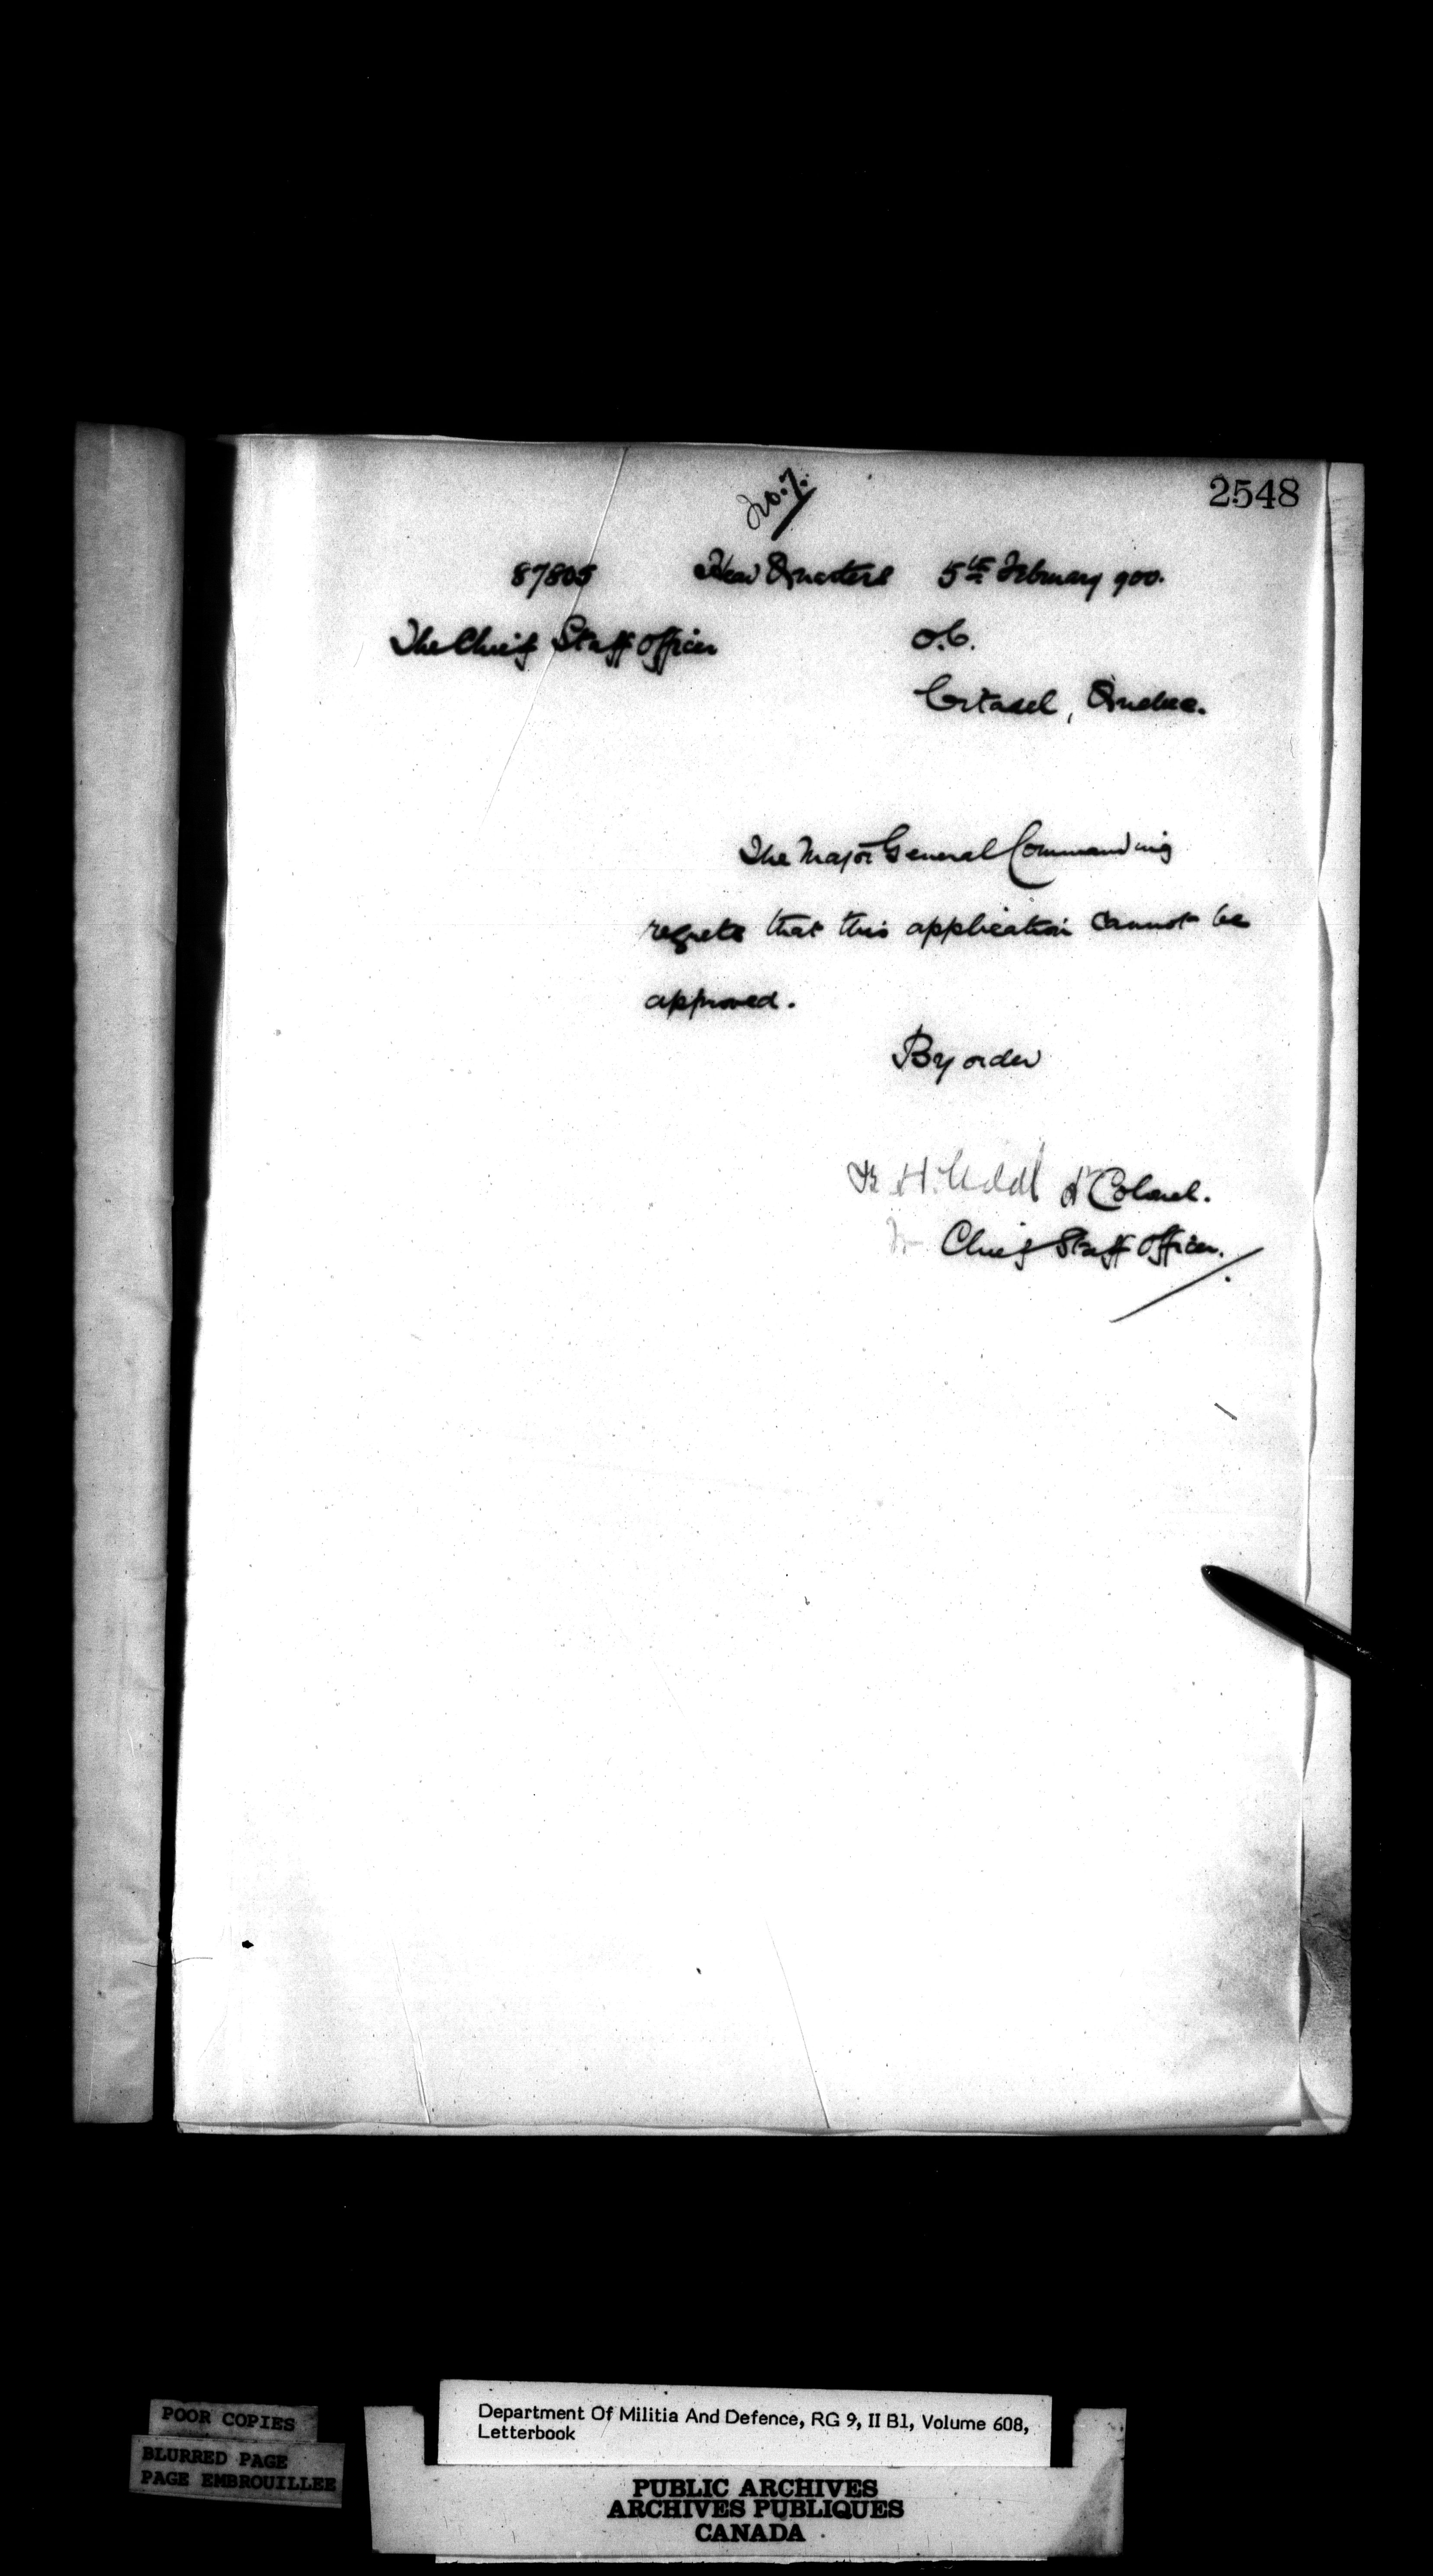 2548
No. 7.
87805 Head Quarters 5th February 900.
The Chief Staff Officer O.C.
Citadel, Quebec.
The Major General Commanding
regrets that this application cannot be
approved.
By order
H. Lt Colonel.
for Chief Staff Officer.
POOR COPIES
BLURRED PAGE
PAGE EMBROUILLEE
Department Of Militia And Defence, RG 9, II B1, Volume 608,
Letterbook
PUBLIC ARCHIVES
ARCHIVES PUBLIQUES
CANADA